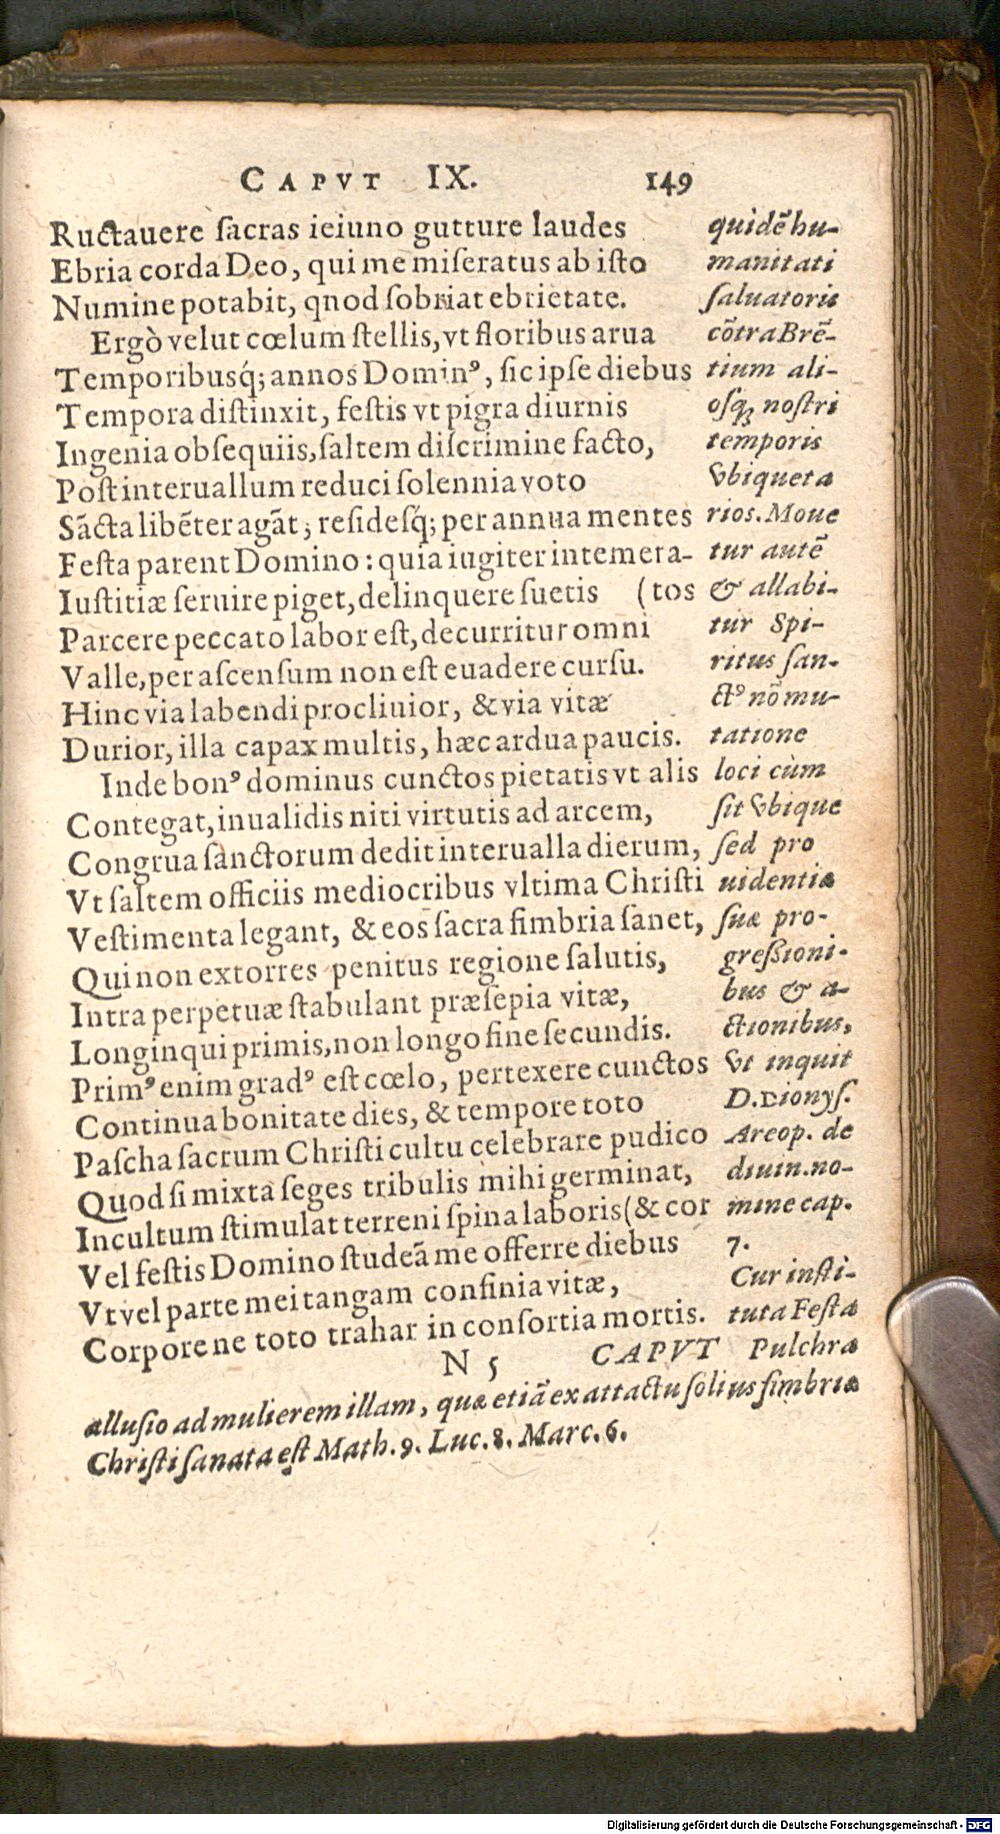 CAPVT IX. 149
Ructauere sacras ieiuno gutture laudes
Ebria corda Deo, qui me miseratus ab isto
Numine potabit, qnod sobriat ebrietate.
Ergò velut cœlum stellis, vt floribus arua
Temporibusq́; annos Dominꝰ, sic ipse diebus
Tempora distinxit, festis vt pigra diurnis
Ingenia obsequiis, saltem discrimine facto,
Post interuallum reduci solennia voto
Sãcta libẽter agãt, residesq́; per annua mentes
Festa parent Domino: quia iugiter intemera-
Iustitiæ seruire piget, delinquere suetis (tos
Parcere peccato labor est, decurritur omni
Valle, per ascensum non est euadere cursu.
Hinc via labendi procliuior, & via vitæ
Durior, illa capax multis, hæc ardua paucis.
Inde bonꝰ dominus cunctos pietatis vt alis
Contegat, inualidis niti virtutis ad arcem,
Congrua sanctorum dedit interualla dierum,
Vt saltem officiis mediocribus vltima Christi
Vestimenta legant, & eos sacra fimbria sanet,
Qui non extorres penitus regione salutis,
Intra perpetuæ stabulant præsepia vitæ,
Longinqui primis, non longo fine secundis.
Primꝰ enim gradꝰ est cœlo, pertexere cunctos
Continua bonitate dies, & tempore toto
Pascha sacrum Christi cultu celebrare pudico
Quod si mixta seges tribulis mihi germinat,
Incultum stimulat terreni spina laboris (& cor
Vel festis Domino studeã me offerre diebus
Vt vel parte mei tangam confinia vitæ,
Corpore ne toto trahar in consortia mortis.
N 5 CAPVT
quidẽ hu-
manitati
saluatoris
cõtra Brẽ-
tium ali-
osq́ꝫ nostri
temporis
Vbiqueta
rios. Moue
tur autẽ
& allabi-
tur Spi-
ritus san-
ctꝰ nõ mu-
tatione
loci cùm
sit Vbique
sed pro
uidentiæ
suæ pro-
greßioni-
bus & a-
ctionibus,
Vt inquit
D. Dionys.
Areop. de
diuin. no-
mine cap.
7.
Cur insti-
tuta Festa
Pulchra
allusio ad mulierem illam, quæ etiã ex attactu solius fimbriæ
Christi sanata est Math. 9. Luc. 8. Marc. 6.
Digitalisierung gefördert durch die Deutsche Forschungsgemeinschaft - DFG